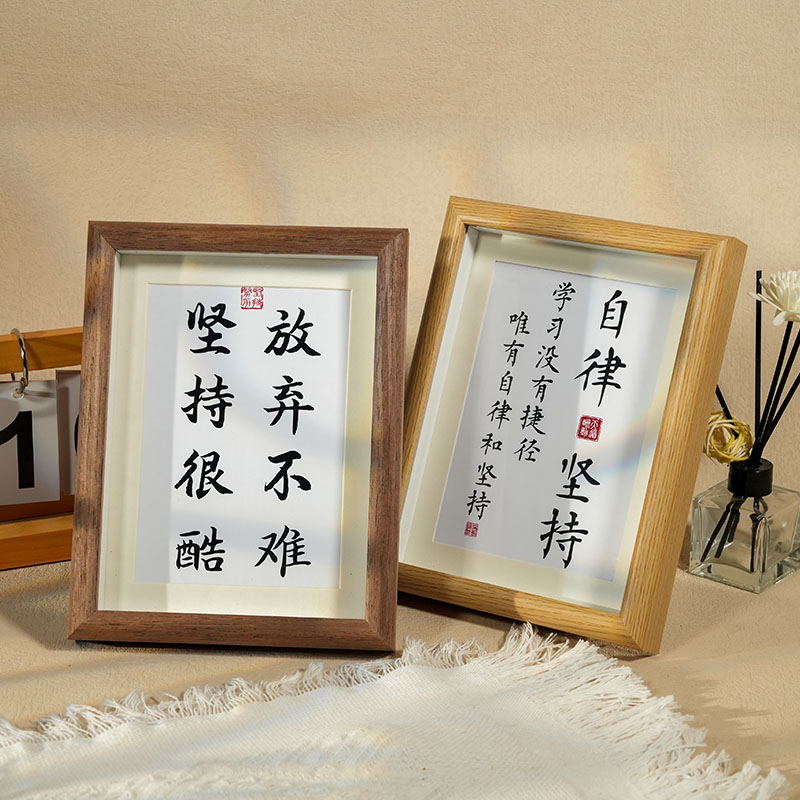 放弃不难
坚持很酷
自律
坚持
学习没有捷径
唯有自律和坚持
1